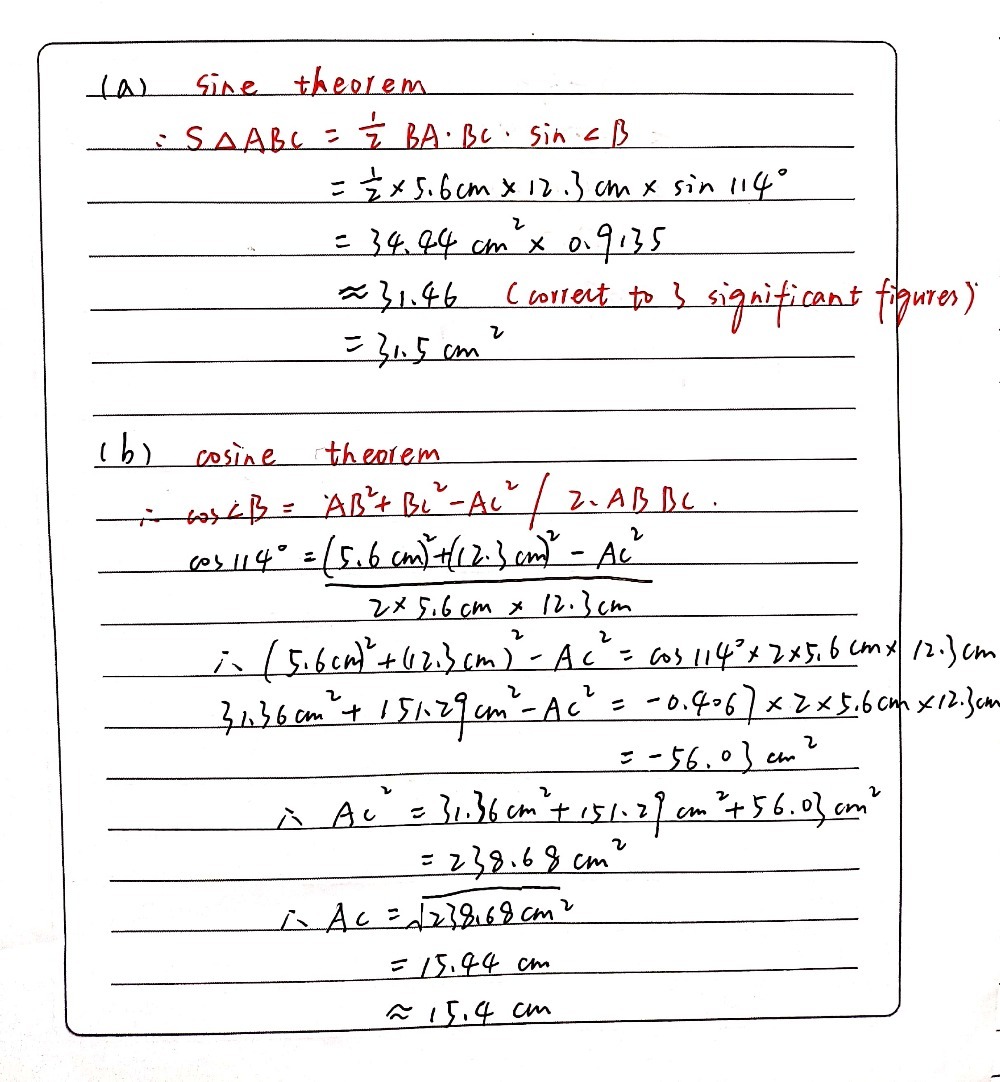 (a) sine theorem
∵ S△ABC = 1/2 BA·BC· sin∠B
= 1/2 × 5.6cm × 12.3 cm × sin 114°
= 34.44 cm² × 0.9135
≈ 31.46 (correct to 3 significant figures)
= 31.5 cm²
(b) cosine theorem
∴ cos∠B = AB²+ BC²-AC² / 2·AB BC.
cos 114° = (5.6 cm)²+(12.3 cm)² - AC²
2× 5.6 cm × 12.3cm
∴ (5.6cm)²+(12.3cm)² - AC² = cos 114°×2×5.6cm× 12.3cm
31.36 cm²+ 151.29cm²- AC² = -0.4067×2×5.6cm×12.3cm
= -56.03 cm²
∴ AC² = 31.36cm²+151.29 cm²+56.03cm²
= 238.68 cm²
∴ AC = √238.68cm²
= 15.44 cm
≈ 15.4 cm